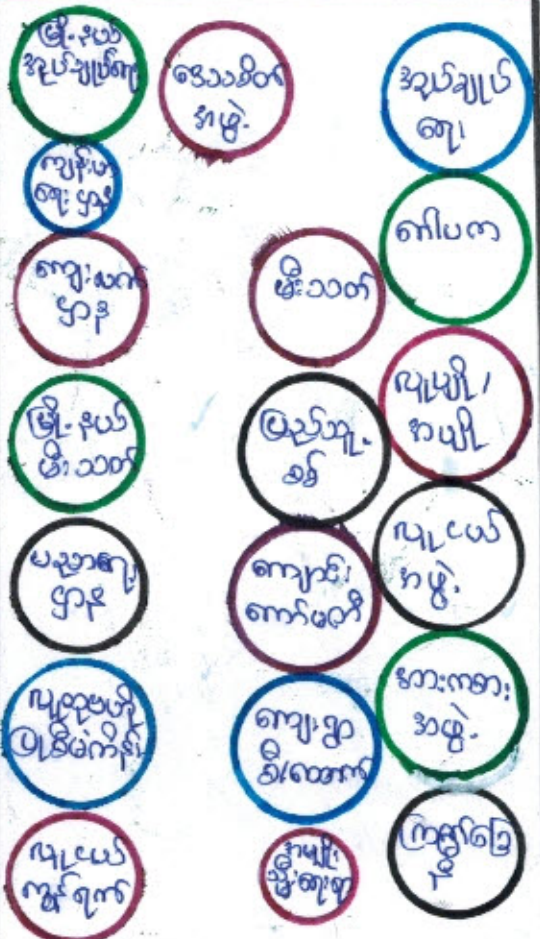 မြို့နယ်
အုပ်ချုပ်ရေး
ကျန်းမာ
ရေးဌာန
ကျေးလက်
ဌာန
မြို့နယ်
မီးသတ်
ပညာရေး
ဌာန
လူထုဗဟို
ပြုစီမံကိန်း
လူငယ်
ကွန်ရက်
ဒေသစိတ်
အဖွဲ့
မီးသတ်
ပြည်သူ့
စစ်
ကျောင်း
ကော်မတီ
ကျေးရွာ
စီးထောက်
အမျိုး
သ္မီးရေးရာ
အုပ်ချုပ်
ရေး
ဂေါပက
လူပျို/
အပျို
လူငယ်
အဖွဲ့
အားကစား
အဖွဲ့
ကြက်ခြေ
နီ